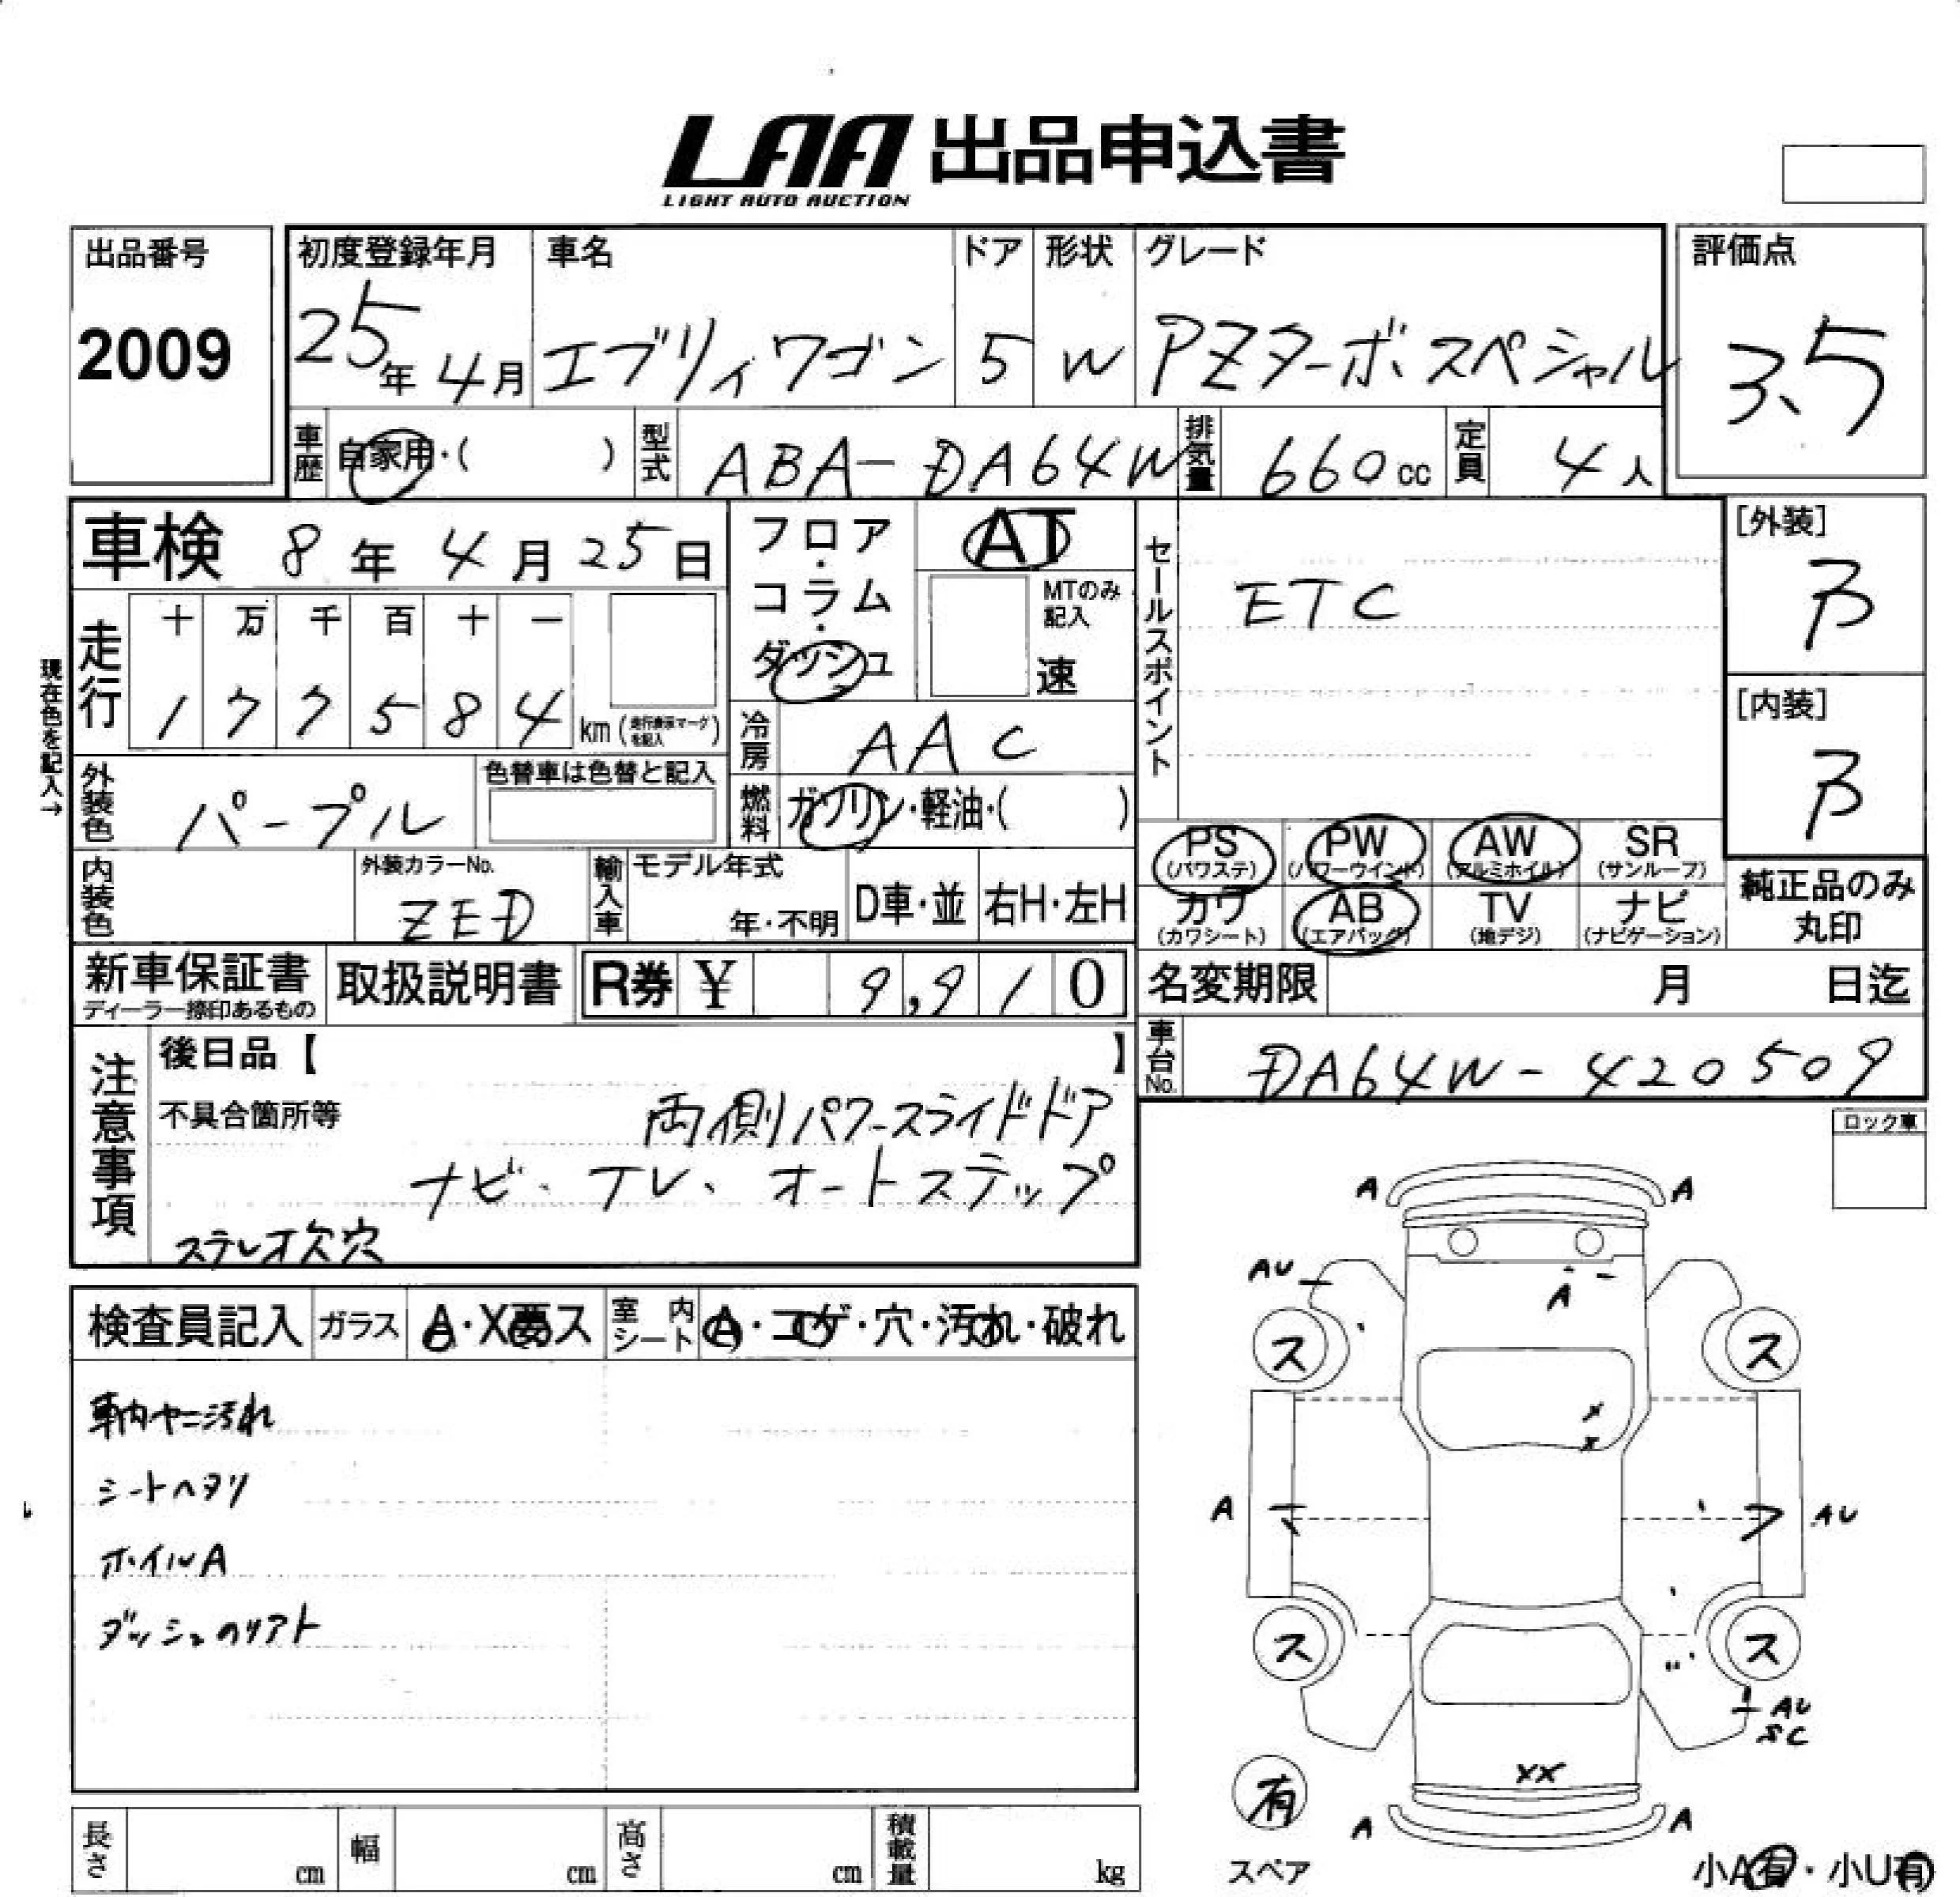 LAA 出品申込書
LIGHT AUTO AUCTION
出品番号
2009
初度登録年月
25年4月
車名
エブリィワゴン
ドア
5
形状
W
グレード
PZターボスペシャル
評価点
3.5
車歴
自家用・( )
型式
ABA-DA64W
排気量
660cc
定員
4人
車検 8年4月25日
フロア・コラム・ダッシュ
AT
MTのみ記入
速
セールスポイント
ETC
[外装]
B
[内装]
B
現在色を記入→
走行
十 万 千 百 十 一
1 7 7 5 8 4 km (走行表示マークを記入)
冷房
AAC
外装色
パープル
色替車は色替と記入
燃料
ガソリン・軽油・( )
PS (パワステ)
PW (パワーウインド)
AW (アルミホイル)
SR (サンルーフ)
カワ (カワシート)
AB (エアバッグ)
TV (地デジ)
ナビ (ナビゲーション)
純正品のみ
丸印
内装色
外装カラーNo.
ZED
輸入車
モデル年式
年・不明
D車・並
右H・左H
新車保証書
ディーラー捺印あるもの
取扱説明書
R券 ¥ 9,910
名変期限 月 日迄
車台No.
DA64W-420509
注意事項
後日品【 】
不具合箇所等
両側パワースライドドア
ナビ、TV、オートステップ
ステレオ欠穴
ロック車
検査員記入
ガラス
A・X要ス
室内シート
A・コゲ・穴・汚れ・破れ
車内ヤニ汚れ
シートヘタリ
ホイルA
ダッシュのリアト
A A
AU
A
ス ス
x
x
A AU
ス ス
AU
SC
xx
有
A A
スペア
小A有・小U有
長さ cm
幅 cm
高さ cm
積載量 kg